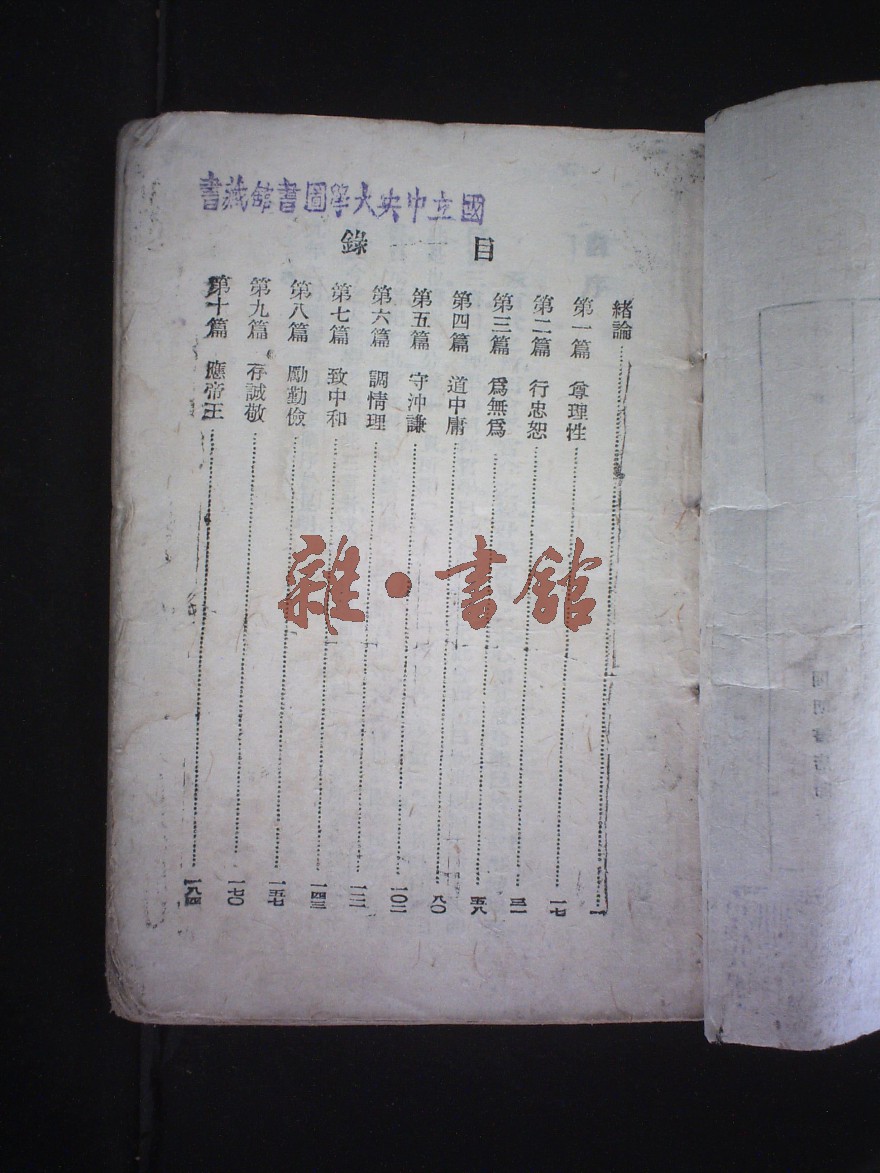 國立中央大學圖書館藏書
目錄
緒論……一
第一篇 尊理性……一七
第二篇 行忠恕……三一
第三篇 爲無爲……五八
第四篇 道中庸……八〇
第五篇 守沖謙……一〇二
第六篇 調情理……
第七篇 致中和……一四三
第八篇 勵勤儉……一五七
第九篇 存誠敬……一七〇
第十篇 應帝王……一八四
雜·書館